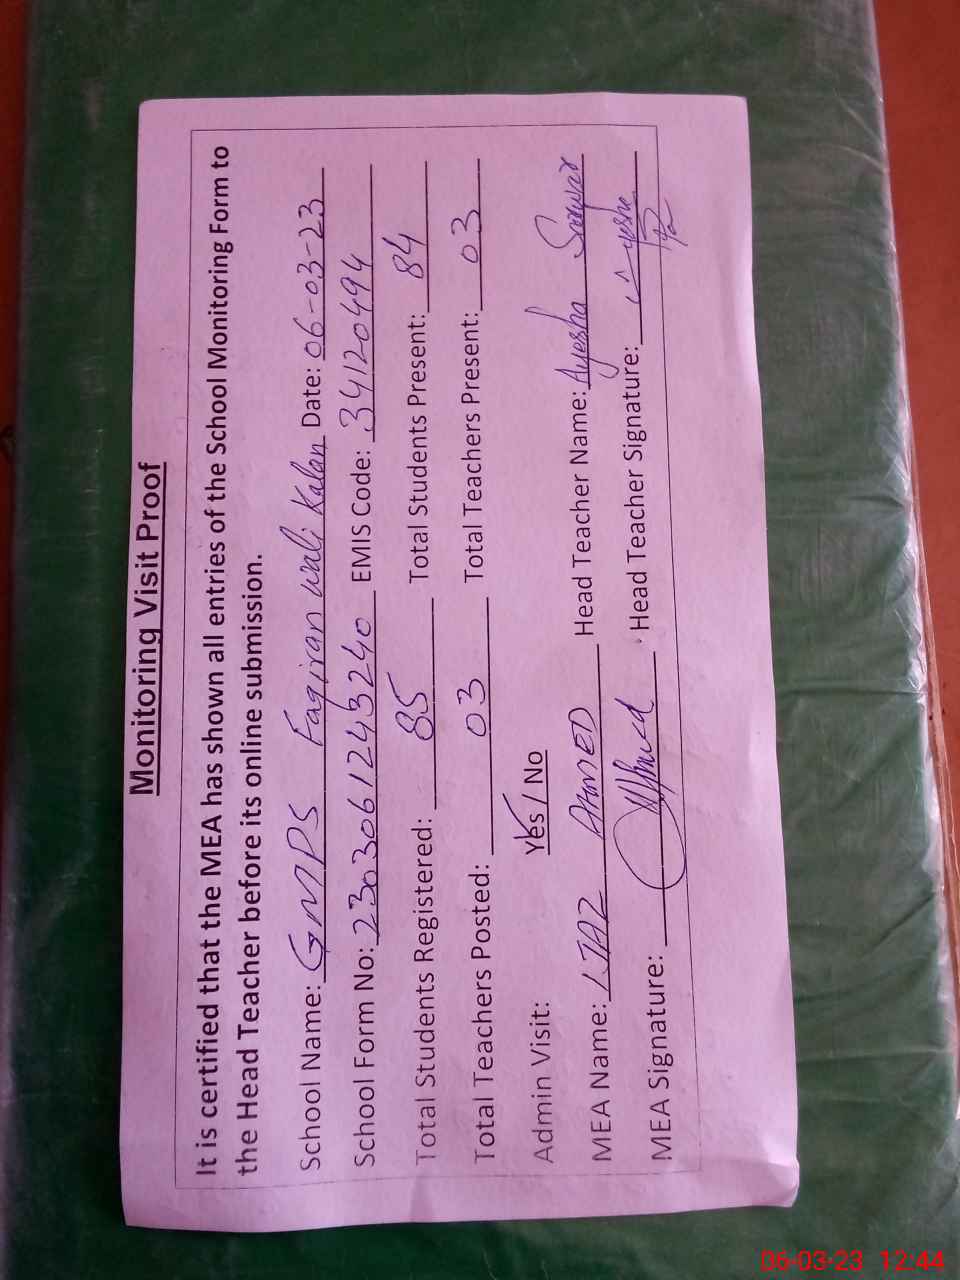 Monitoring Visit Proof
It is certified that the MEA has shown all entries of the School Monitoring Form to
the Head Teacher before its online submission.
School Name: GMPS Faqiran wali Kalan Date: 06-03-23
School Form No: 2303061243240 EMIS Code: 34120494
Total Students Registered: 85 Total Students Present: 84
Total Teachers Posted: 03 Total Teachers Present: 03
Admin Visit: Yes / No
MEA Name: IJAZ AHMED Head Teacher Name: Ayesha Sarwar
MEA Signature: Head Teacher Signature: Ayesha
06-03-23 12:44